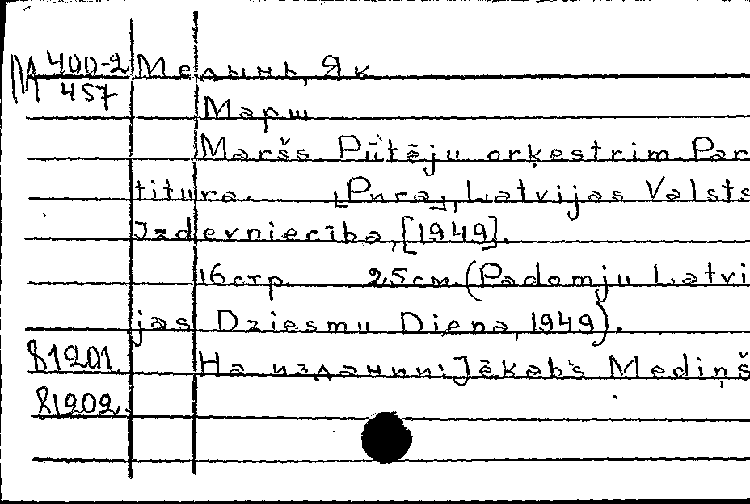 М 400-2 Медынь, Як
457
Марш
Maršs. Pūtēju orķestrim. Par
titura. [Рига], Latvijas Valsts
Izdevniecība, [1949].
16 стр. 25 см. (Padomju Latvi
jas Dziesmu Diena, 1949).
81201. На издании: Jēkabs Mediņš
81202.